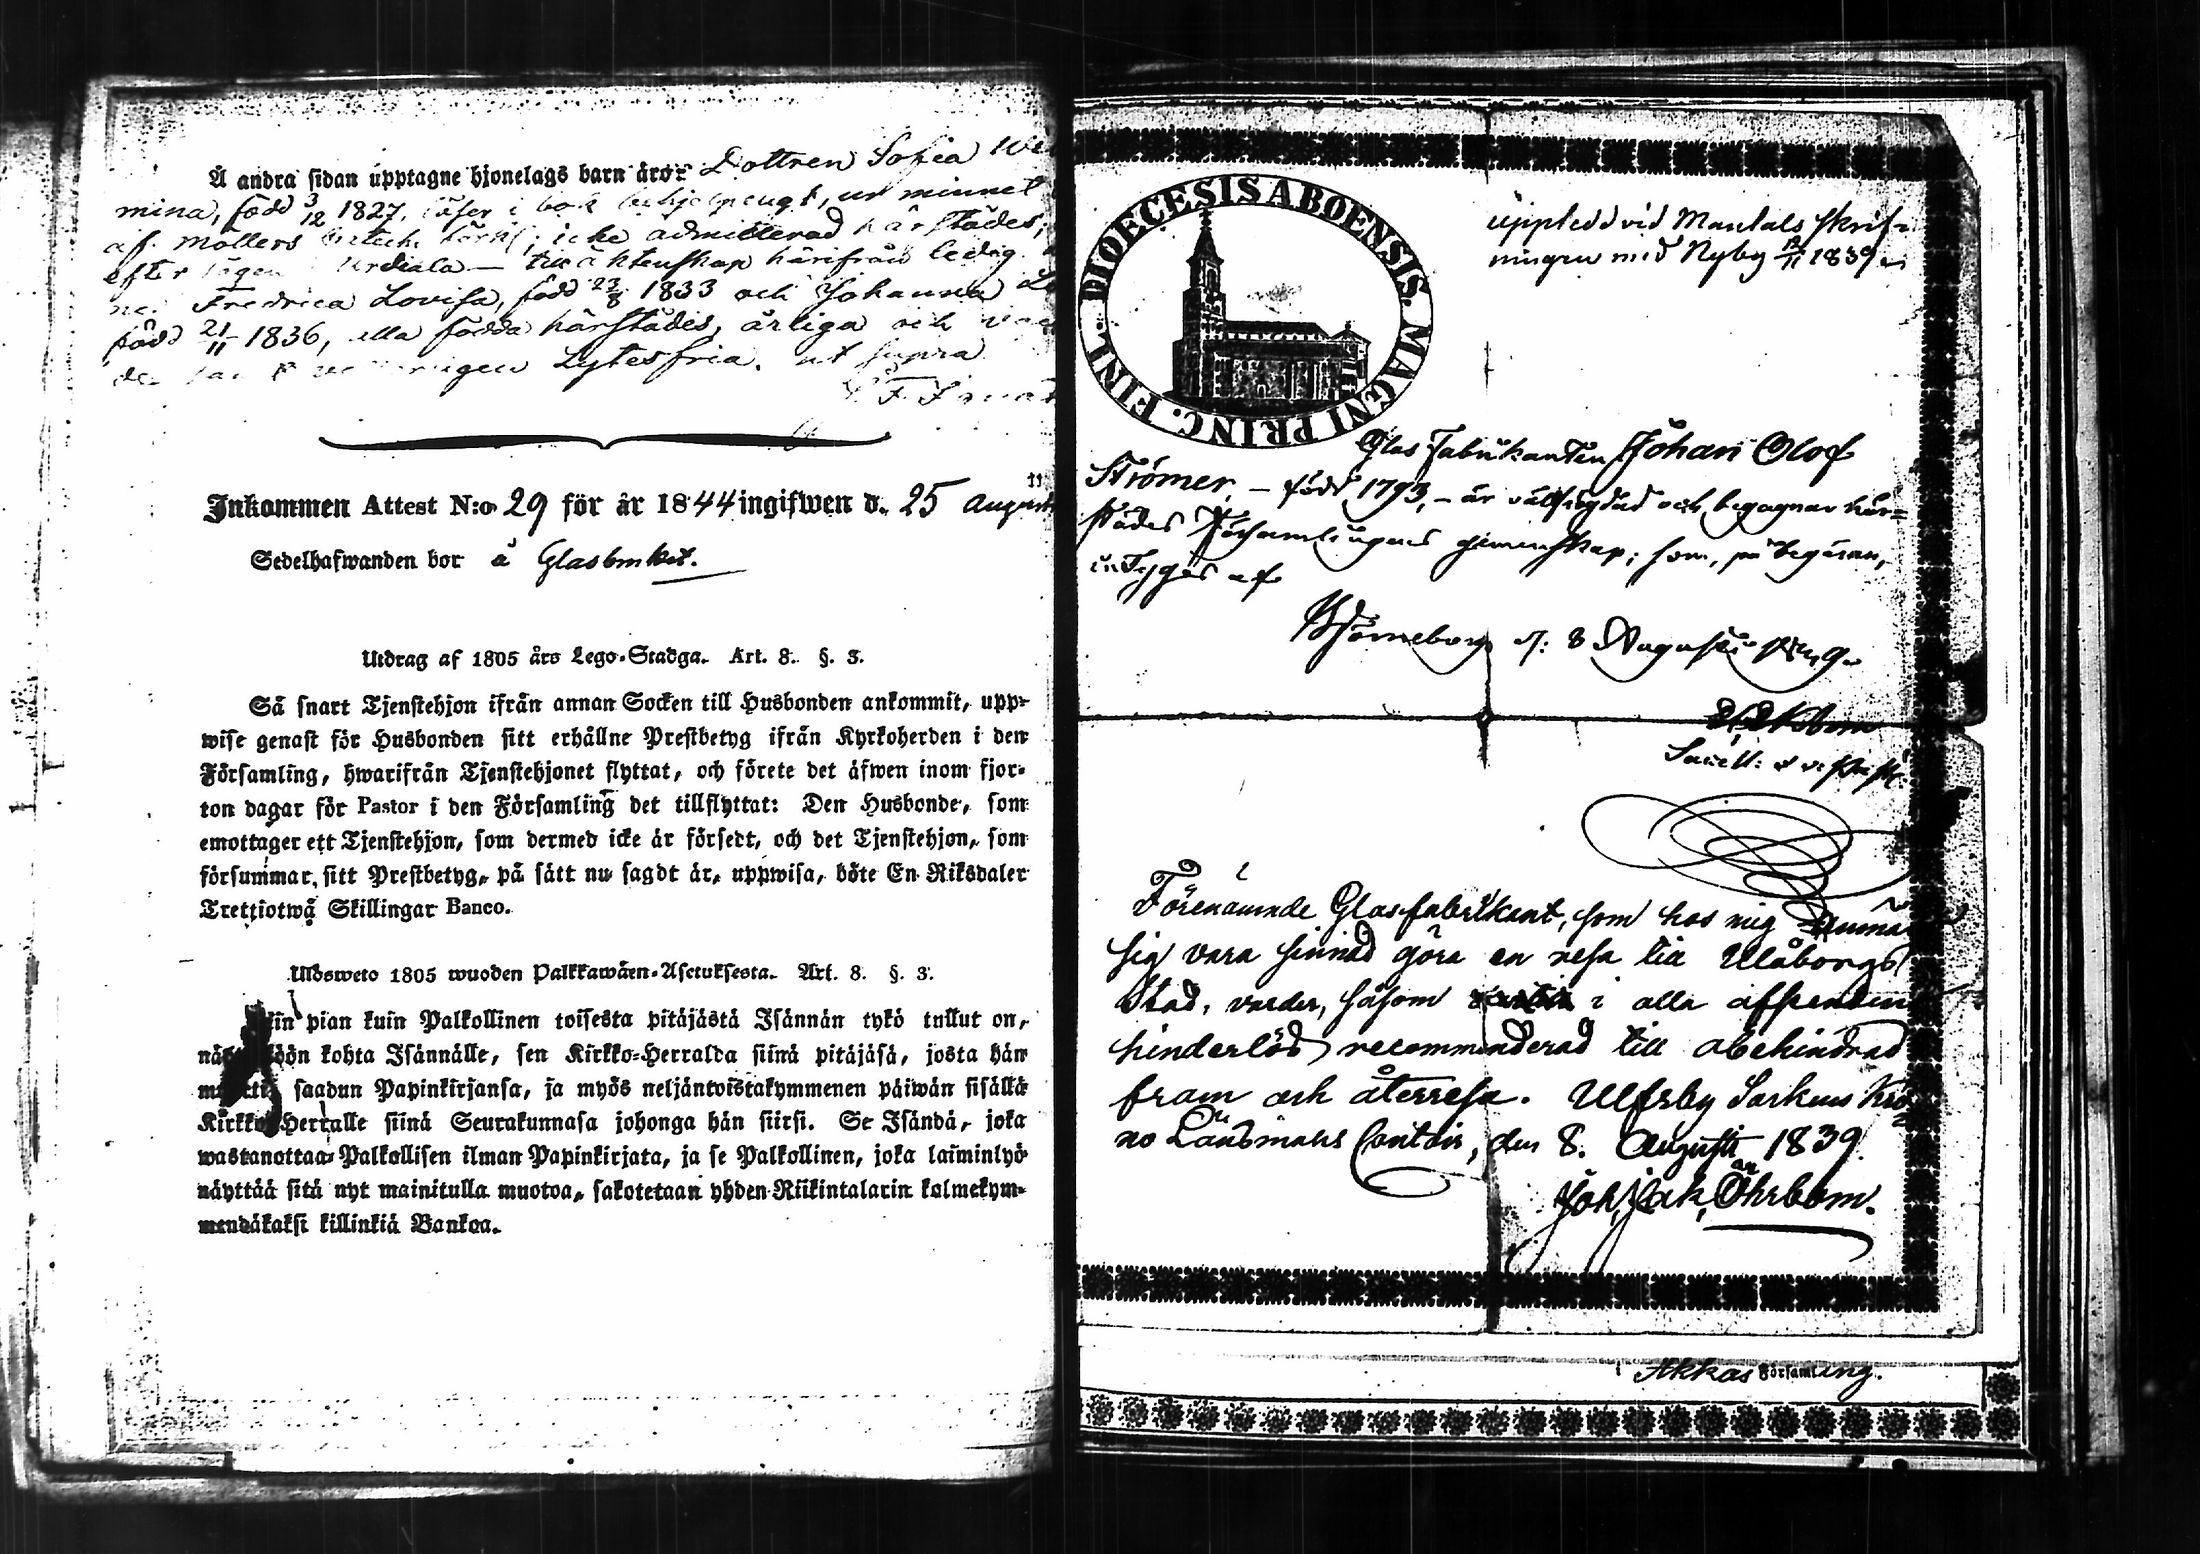 Å andra sidan upptagne hjonelags barn äro: Dottren Sofia Wil
mina, född 3/12 1827, läser i bok behjelpeligt, ur minnet
af Möllers förkl, icke admitterad härstädes,
efter Urdiala — till äktenskap härifrån ledig
Fredrica Lovisa, född 23/8 1833 och Johanna
född 21/11 1836, alla födda härstädes, ärliga och
Lytesfria. ut supra
Inkommen Attest N:o 29 för år 1844 ingifwen d. 25 Augusti
Sedelhafwanden bor å Glasbruket.
Utdrag af 1805 års Lego-Stadga. Art. 8. §. 3.
Så snart Tjenstehjon ifrån annan Socken till Husbonden ankommit, upp-
wise genast för Husbonden sitt erhållne Prestbetyg ifrån Kyrkoherden i den
Församling, hwarifrån Tjenstehjonet flyttat, och förete det äfwen inom fjor-
ton dagar för Pastor i den Församling det tillflyttat: Den Husbonde, som
emottager ett Tjenstehjon, som dermed icke är försedt, och det Tjenstehjon, som
försummar, sitt Prestbetyg, på sätt nu sagdt är, uppwisa, böte En Riksdaler
Trettiotwå Skillingar Banco.
Ulosweto 1805 wuoden Palkkawäen-Asetuksesta. Art. 8. §. 3.
pian kuin Palkollinen toisesta pitäjästä Isännän tykö tullut on,
kohta Isännälle, sen Kirkko-Herralda siinä pitäjäsä, josta hän
saadun Papinkirjansa, ja myös neljäntoistakymmenen päiwän sisällä
Kirkko-Herralle siinä Seurakunnasa johonga hän siirsi. Se Isändä, joka
wastanottaa Palkollisen ilman Papinkirjata, ja se Palkollinen, joka laiminlyö
näyttää sitä nyt mainitulla muotoa, sakotetaan yhden Riikintalarin kolmekym-
mendäkaksi killinkiä Bankoa.
DIOECESIS ABOENSIS. MAGNI PRINC. FINL.
Uppledd vid Mantals skrif-
ningen med Nyby 12/11 1839
Glas Fabrikanten Johan Olof
Strömer, — född 1793, — är välfrejdad och begagnar här-
städes Församlingens gemenskap; som, på begäran,
intygas af
Björneborg d: 8 Augusti
Förenämde Glasfabrikant, som hos mig anmält
sig vara sinnad göra en resa till Uleåborgs
Stad, varder, såsom i alla afseenden
hinderlös recommenderad till obehindrad
fram och återresa. Ulfsby Sockens Kro-
no Länsmans Contoir, den 8. Augusti 1839.
Joh, Jak, Öhrbom.
i Akkas Församling.